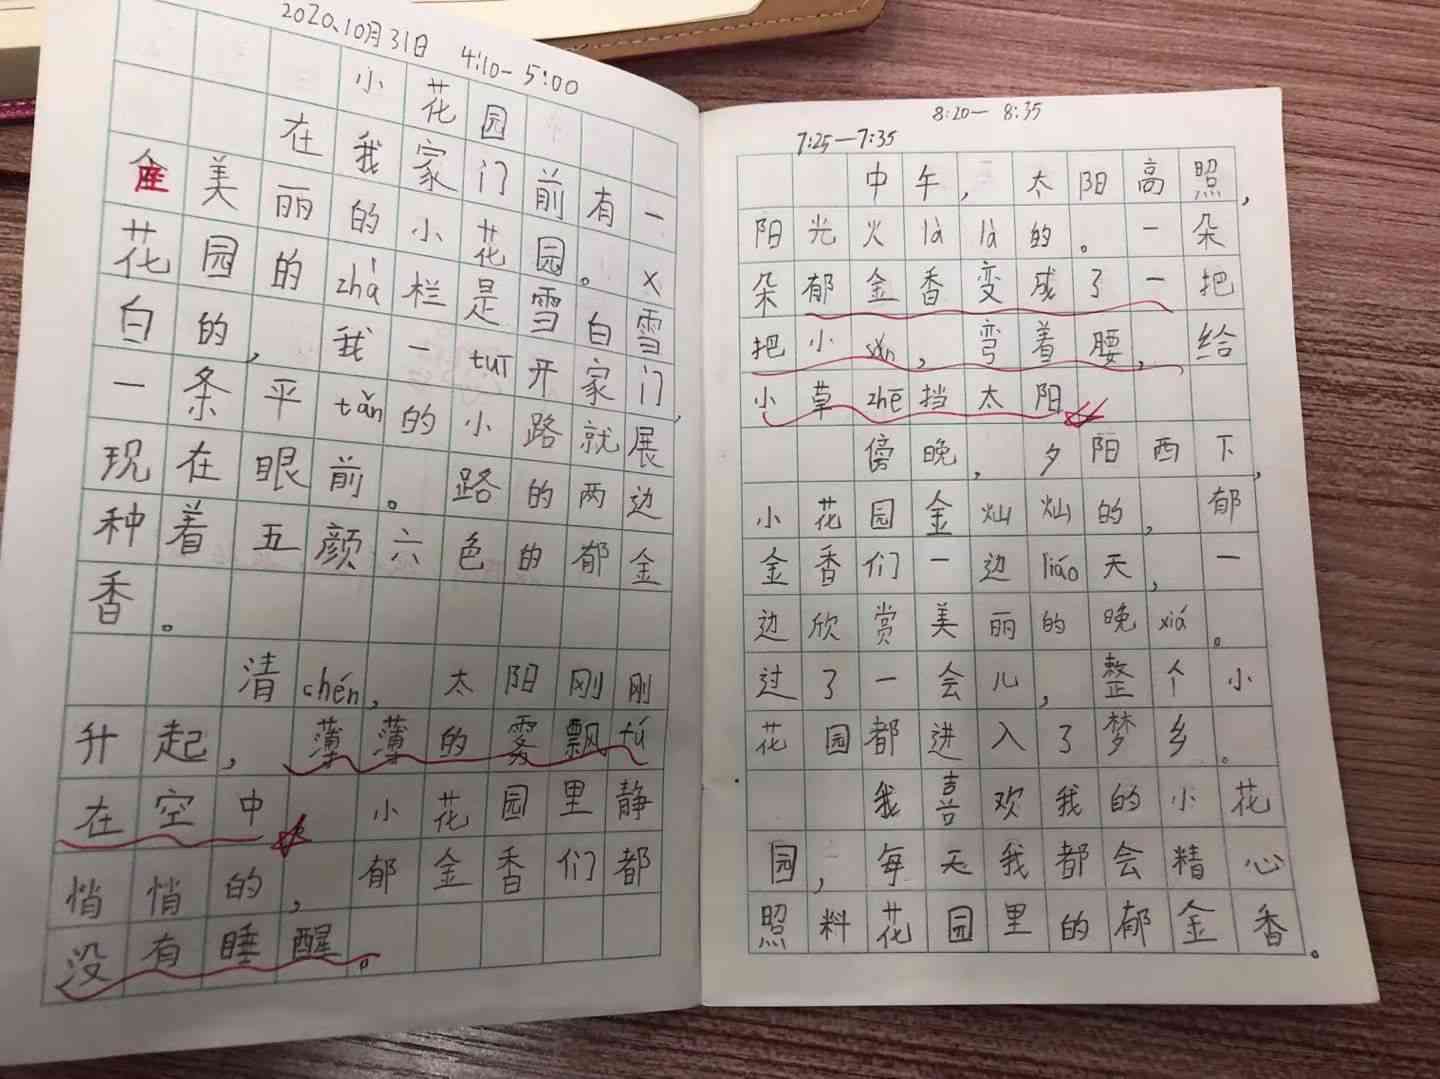 2020.10月31日 4:10-5:00
小花园
在我家门前有一
座美丽的小花园。x
花园的zhà栏是雪白雪
白的，我一tuī开家门，
一条平tǎn的小路就展
现在眼前。路的两边
种着五颜六色的郁金
香。
清chén，太阳刚刚
升起，薄薄的雾飘fú
在空中。小花园里静
悄悄的，郁金香们都
没有睡醒。
8:20-8:35
7:25-7:35
中午，太阳高照，
阳光火là là的。一朵
朵郁金香变成了一把
把小sǎn，弯着腰，给
小草zhē挡太阳。
傍晚，夕阳西下，
小花园金灿灿的，郁
金香们一边liáo天，一
边欣赏美丽的晚xiá。
过了一会儿，整个小
花园都进入了梦乡。
我喜欢我的小花
园，每天我都会精心
照料花园里的郁金香。